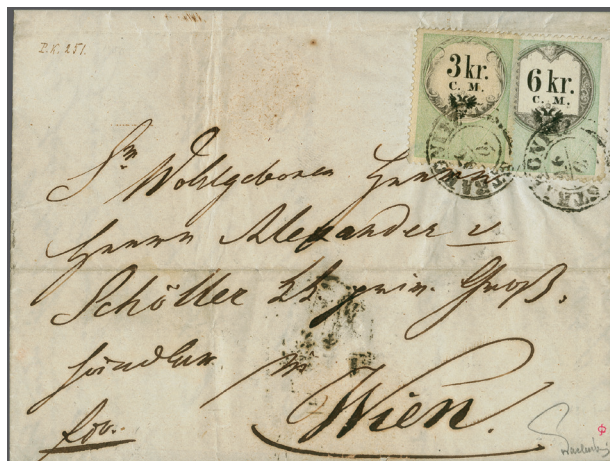 P.K. 251.
3 kr.
C. M.
6 kr.
C. M.
Sr Wohlgeboren Herrn
Herrn Alexander v
Schöller kk priv. Groß.
händler in
Wien.